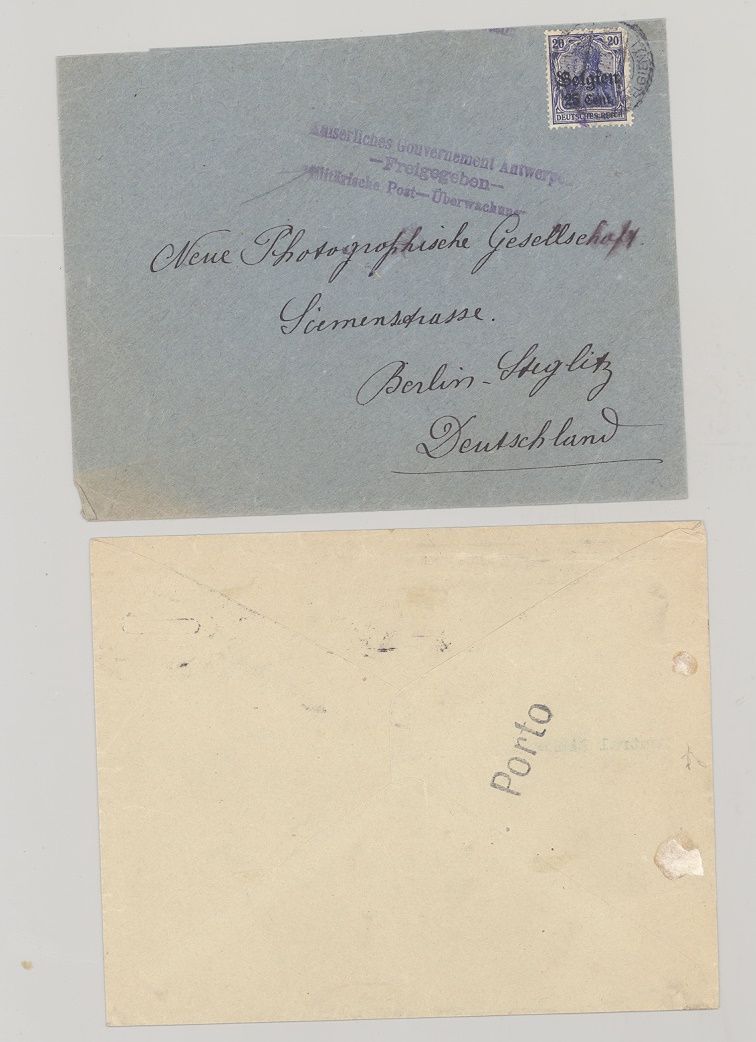 20 20
Belgien
25 Cent.
DEUTSCHES REICH
Kaiserliches Gouvernement Antwerpen
—Freigegeben—
Militärische Post—Überwachung
Neue Photographische Gesellschaft.
Siemenstrasse.
Berlin-Steglitz
Deutschland
Porto